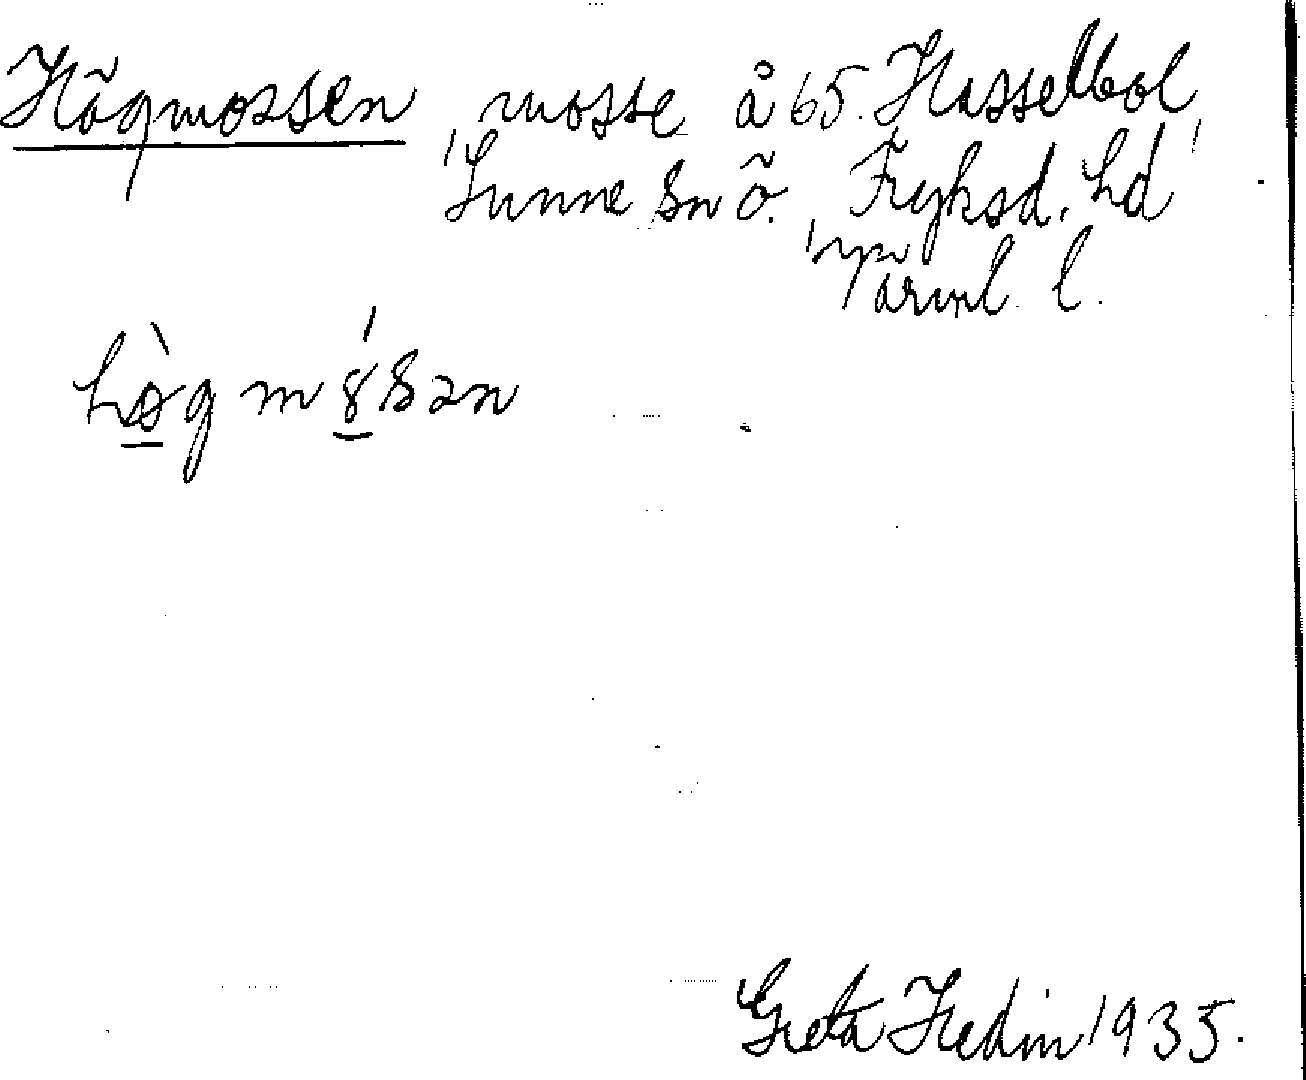 Högmossen, mosse å 65. Hasselbol,
Sunne sn ö. Fryksd. hd,
Värml. l.
hø̀gmǿsən
Greta Hedin 1935.